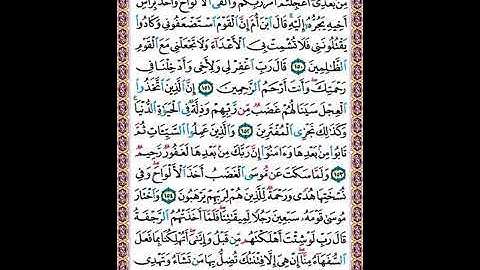 مِنۢ بَعۡدِيٓۖ أَعَجِلۡتُمۡ أَمۡرَ رَبِّكُمۡۖ وَأَلۡقَى ٱلۡأَلۡوَاحَ وَأَخَذَ بِرَأۡسِ
أَخِيهِ يَجُرُّهُۥٓ إِلَيۡهِۚ قَالَ ٱبۡنَ أُمَّ إِنَّ ٱلۡقَوۡمَ ٱسۡتَضۡعَفُونِي وَكَادُواْ
يَقۡتُلُونَنِي فَلَا تُشۡمِتۡ بِيَ ٱلۡأَعۡدَآءَ وَلَا تَجۡعَلۡنِي مَعَ ٱلۡقَوۡمِ
ٱلظَّٰلِمِينَ ١٥٠ قَالَ رَبِّ ٱغۡفِرۡ لِي وَلِأَخِي وَأَدۡخِلۡنَا فِي
رَحۡمَتِكَۖ وَأَنتَ أَرۡحَمُ ٱلرَّٰحِمِينَ ١٥١ إِنَّ ٱلَّذِينَ ٱتَّخَذُواْ
ٱلۡعِجۡلَ سَيَنَالُهُمۡ غَضَبٞ مِّن رَّبِّهِمۡ وَذِلَّةٞ فِي ٱلۡحَيَوٰةِ ٱلدُّنۡيَاۚ
وَكَذَٰلِكَ نَجۡزِي ٱلۡمُفۡتَرِينَ ١٥٢ وَٱلَّذِينَ عَمِلُواْ ٱلسَّيِّـَٔاتِ ثُمَّ
تَابُواْ مِنۢ بَعۡدِهَا وَءَامَنُوٓاْ إِنَّ رَبَّكَ مِنۢ بَعۡدِهَا لَغَفُورٞ رَّحِيمٞ
١٥٣ وَلَمَّا سَكَتَ عَن مُّوسَى ٱلۡغَضَبُ أَخَذَ ٱلۡأَلۡوَاحَۖ وَفِي
نُسۡخَتِهَا هُدٗى وَرَحۡمَةٞ لِّلَّذِينَ هُمۡ لِرَبِّهِمۡ يَرۡهَبُونَ ١٥٤ وَٱخۡتَارَ
مُوسَىٰ قَوۡمَهُۥ سَبۡعِينَ رَجُلٗا لِّمِيقَٰتِنَاۖ فَلَمَّآ أَخَذَتۡهُمُ ٱلرَّجۡفَةُ
قَالَ رَبِّ لَوۡ شِئۡتَ أَهۡلَكۡتَهُم مِّن قَبۡلُ وَإِيَّٰيَۖ أَتُهۡلِكُنَا بِمَا فَعَلَ
ٱلسُّفَهَآءُ مِنَّآۖ إِنۡ هِيَ إِلَّا فِتۡنَتُكَ تُضِلُّ بِهَا مَن تَشَآءُ وَتَهۡدِي